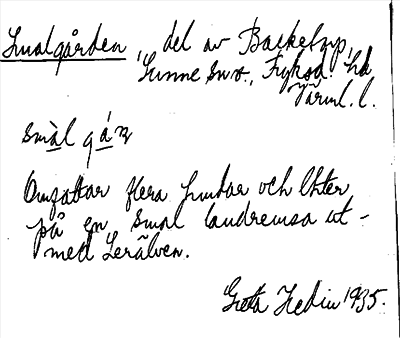 Smalgården, del av Backebyn,
Sunne sn., Fryksd. hd
Värml. l.
smal gá
Omfattar flera hus och
på en smal landremsa ut-
med Lerälven.
Greta Hedin 1935.